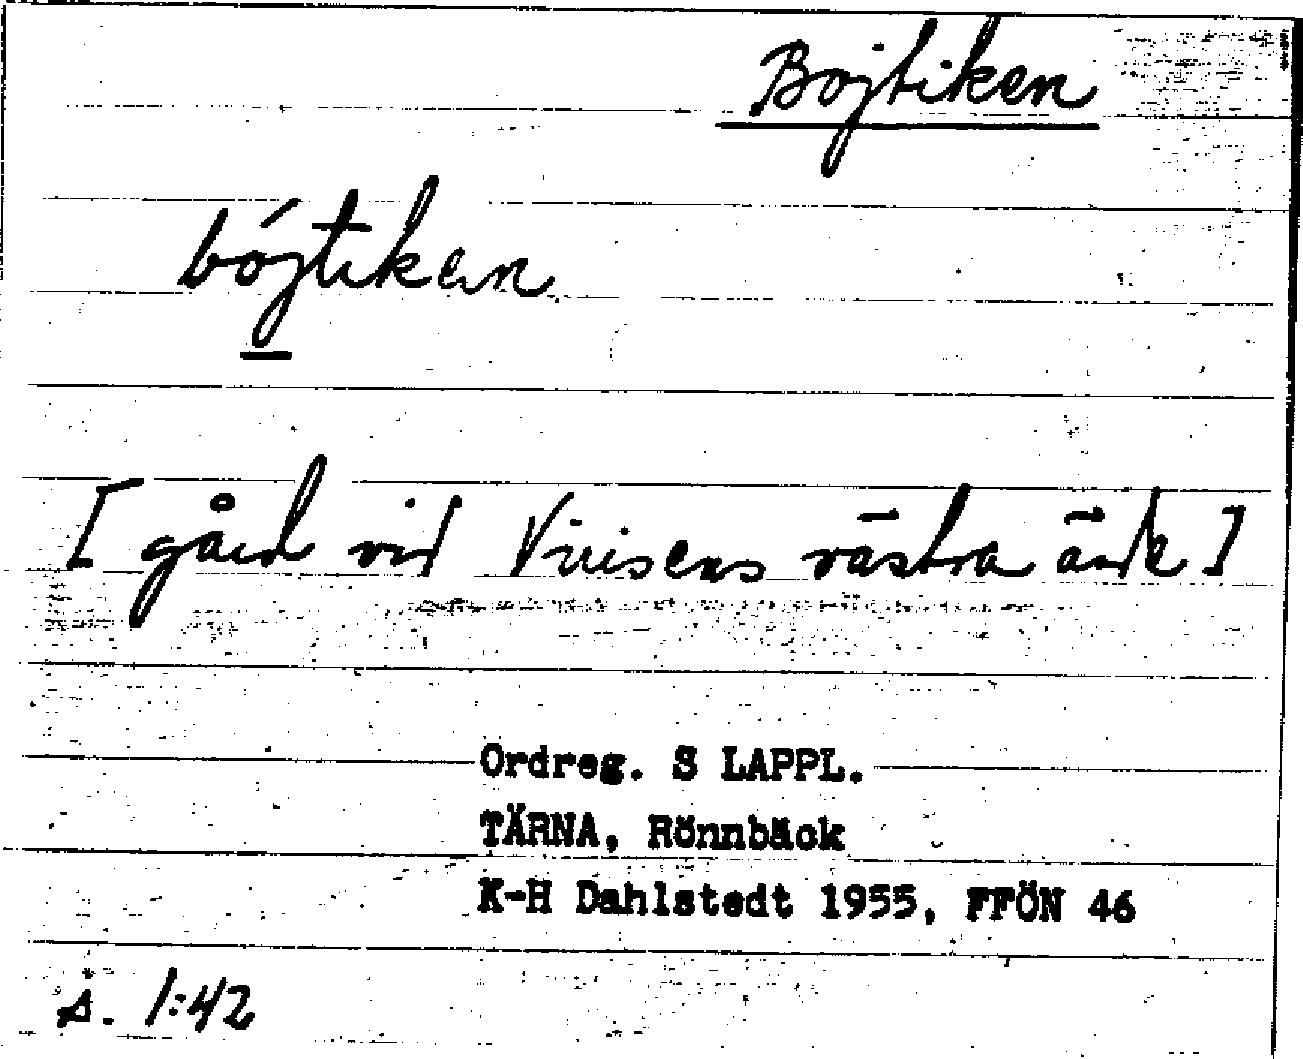 Bojtiken
bójtiken
[ gård vid Virisens västra ände ]
Ordreg. S LAPPL.
TÄRNA, Rönnbäck
K-H Dahlstedt 1955, FFÖN 46
s. 1:42